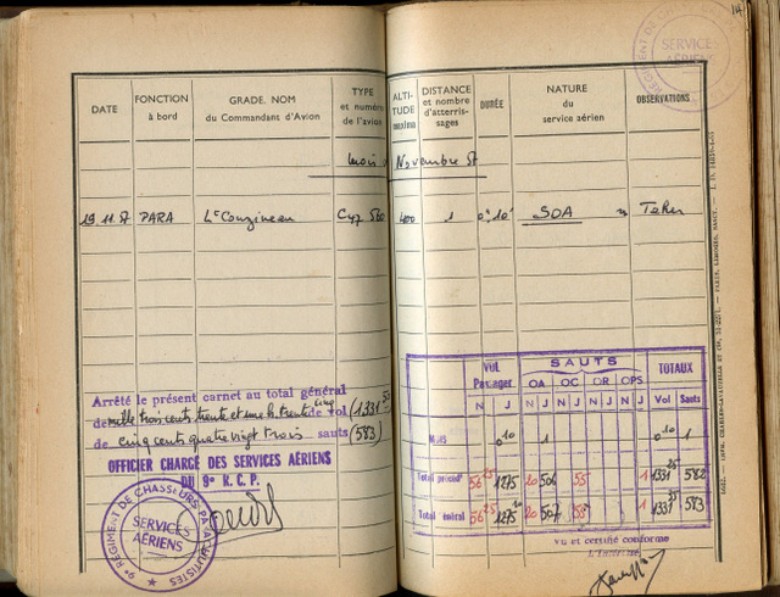 14
RÉGIMENT DE CHASSEURS
SERVICES
AÉRIENS
DATE
FONCTION
à bord
GRADE. NOM
du Commandant d'Avion
TYPE
et numéro
de l'avion
ALTI-
TUDE
maxima
DISTANCE
et nombre
d'atterris-
sages
DURÉE
NATURE
du
service aérien
OBSERVATIONS
Mois Novembre 57
19.11.57 PARA Lt Couzineau C47 400 1 0h10 SOA
Arrêté le présent carnet au total général
de mille trois cents trente et une h. trente cinq de vol (1331 35)
de cinq cents quatre vingt trois sauts (583)
OFFICIER CHARGÉ DES SERVICES AÉRIENS
DU 9e R.C.P.
9e RÉGIMENT DE CHASSEURS PARACHUTISTES
SERVICES
AÉRIENS
VOL
Passager
SAUTS
TOTAUX
OA OC OR OPS
N J N J N J N J N J Vol Sauts
Mois 0 10 1 0 10 1
Total précédt 56 25 1275 20 506 55 1 1331 25 582
Total général 56 25 1275 10 20 507 55 1 1331 35 583
vu et certifié conforme
L'Intéressé,